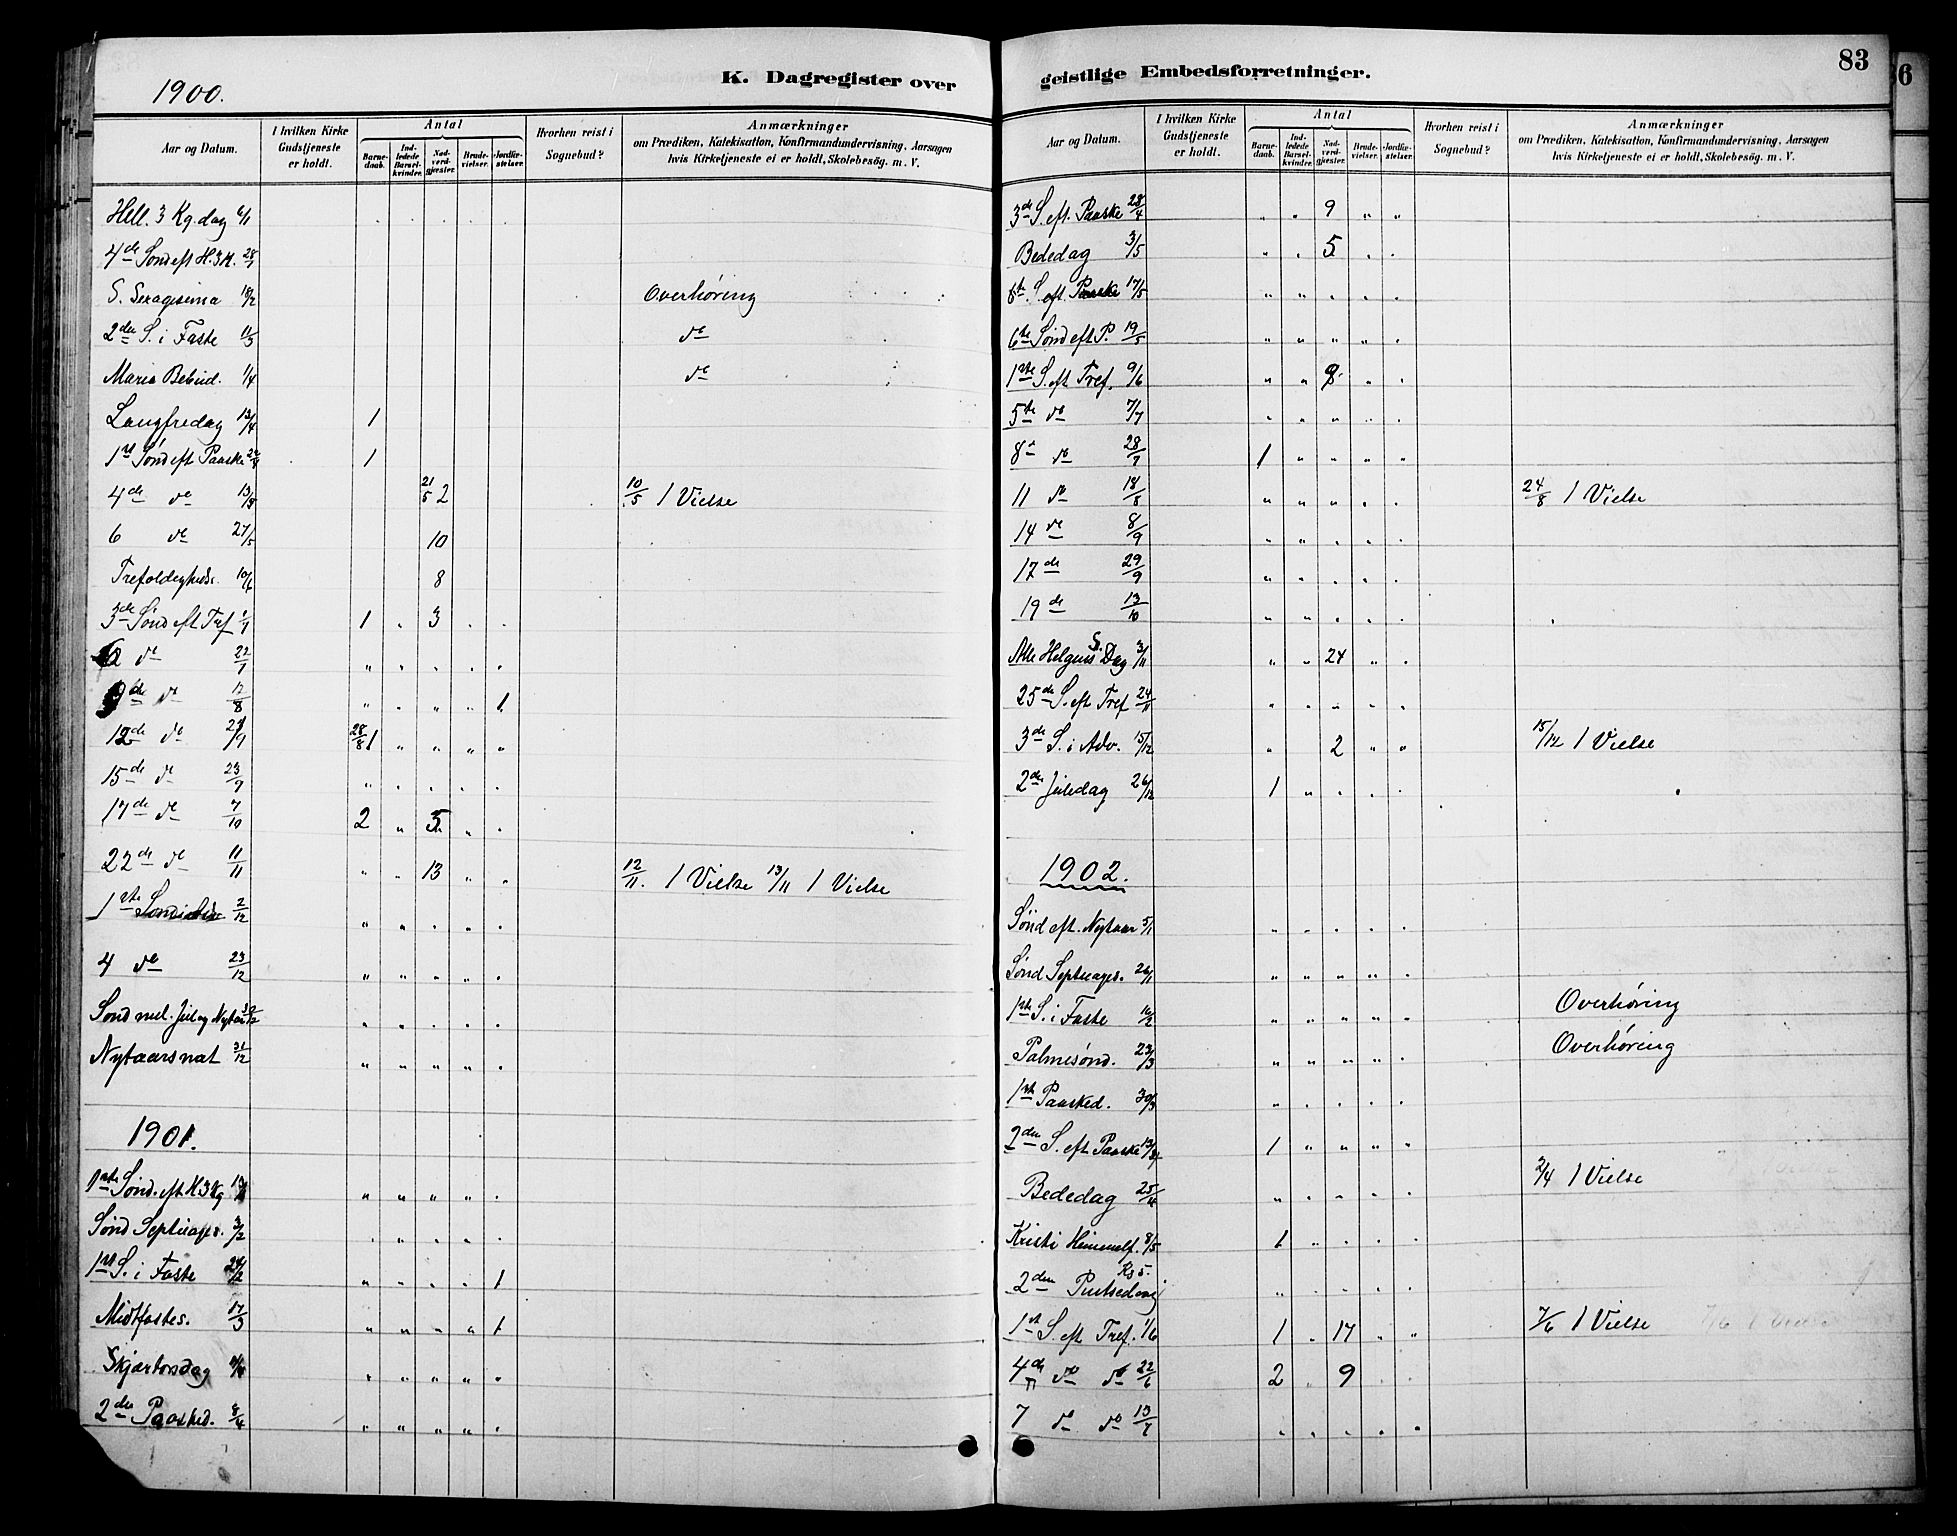 1900.
K. Dagregister over
Aar og Datum. I hvilken Kirke Gudstjeneste er holdt. Antal Barnedaab. Indledede Barselkvinder. Nadverdgjæster. Brudevielser. Jordfæstelser. Hvorhen reist i Sognebud? Anmærkninger om Prædiken, Katekisation, Konfirmandundervisning, Aarsagen hvis Kirketjeneste ei er holdt, Skolebesög. m. V.
Hell. 3 Kg. dag 6/1
4de Sønd eft H. 3 K. 28/1
S. Sexagesima 18/2 Overhøring
2den S. i Faste 11/3 do
Maria Bebud. 1/4 do
Langfredag 13/4 1
1st Sønd eft Paaske 22/4 1
4de do 13/5 21/5 2 10/5 1 Vielse
6 do 27/5 10
Trefoldigheds. 10/6 8
3de Sønd eft Tref 1/7 1 " 3 " "
do 22/7 " " " " "
9de do 12/8 " " " " 1
12de do /9 28/8 1 " " " "
15de do 23/9 " " " " "
17de do 7/10 2 " 5 " "
22de do 11/11 " " 13 " " 12/11. 1 Vielse 13/11 1 Vielse
1ste 2/12 " " " " "
4 do 23/12 " " " " "
Sønd mel. Jul og Nytaar 30/12 " " " " "
Nytaarsnat 31/12 " " " " "
1901.
1ste Sønd. eft H 3 Kg 13/1 " " " " "
Sønd Septuages. 3/2 " " " " "
1st S. i Faste 24/2 " " " " 1
Midtfastes. 17/3 " " " " 1
Skjærtorsdag 4/4 " " " " "
2den Paasked. 8/4 " " " " "
geistlige Embedsforretninger.
83
Aar og Datum. I hvilken Kirke Gudstjeneste er holdt. Antal Barnedaab. Indledede Barselkvinder. Nadverdgjæster. Brudevielser. Jordfæstelser. Hvorhen reist i Sognebud? Anmærkninger om Prædiken, Katekisation, Konfirmandundervisning, Aarsagen hvis Kirketjeneste ei er holdt, Skolebesög. m. V.
3de S. eft. Paaske 28/4 " " 9 " "
Bededag 3/5 " " 5 " "
S. eft. Paaske 17/5 " " " " "
6te Sønd eft P. 19/5 " " " " "
1ste S. eft Tref. 9/6 " " " "
5te do 7/7 " " " " "
8 do 28/7 1 " " " "
11 do 18/8 " " " " " 24/8 1 Vielse
14 do 8/9 " " " " "
17de 29/9 " " " " "
19de 13/10 " " " " "
Alle Helgens S. Dag 3/11 " " 24 " "
25de S. eft Tref 24/11 " " " " "
3de S. i Adv. 15/12 " 2 " " 15/12 1 Vielse
2den Juledag 26/12 1 " " " "
1902.
Sønd eft. Nytaar 5/1 " " " " "
Sønd Septuages. 26/1 " " " " "
1ste S. i Faste 16/2 " " " " " Overhøring
Palmesønd. 23/3 " " " " " Overhøring
1st Paasked. 30/3 " " " " "
2den S. eft Paaske 13/4 1 " " " "
2/4 1 Vielse
Bededag 25/4 " " " " "
Kristi Himmelf. 8/5 1 " " " "
2den Pintsedag " " " " "
1st S. eft Tref. 1/6 1 " 17 " " 7/6 1 Vielse
4de do do 22/6 2 " 9 " "
7 do do 13/7 " " " " "